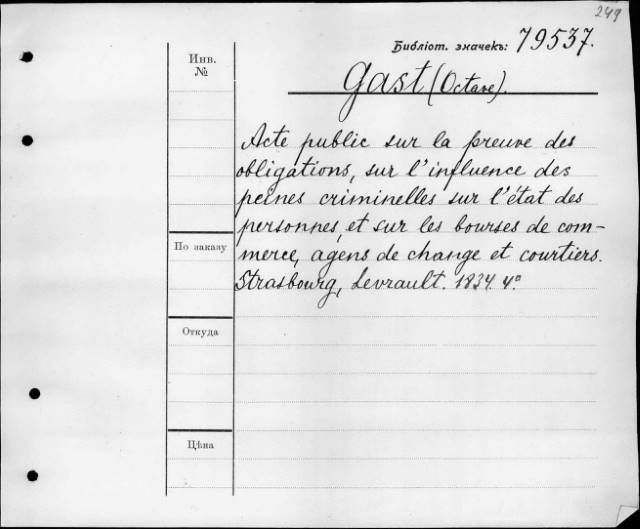 249
Библіот. значекъ: 79537.
Инв.
№
Gast (Octave).
Acte public sur la preuve des
obligations, sur l'influence des
peines criminelles sur l'état des
personnes, et sur les bourses de com-
merce, agens de change et courtiers.
Strasbourg, Levrault. 1834. 4°.
По заказу
Откуда
Цѣна